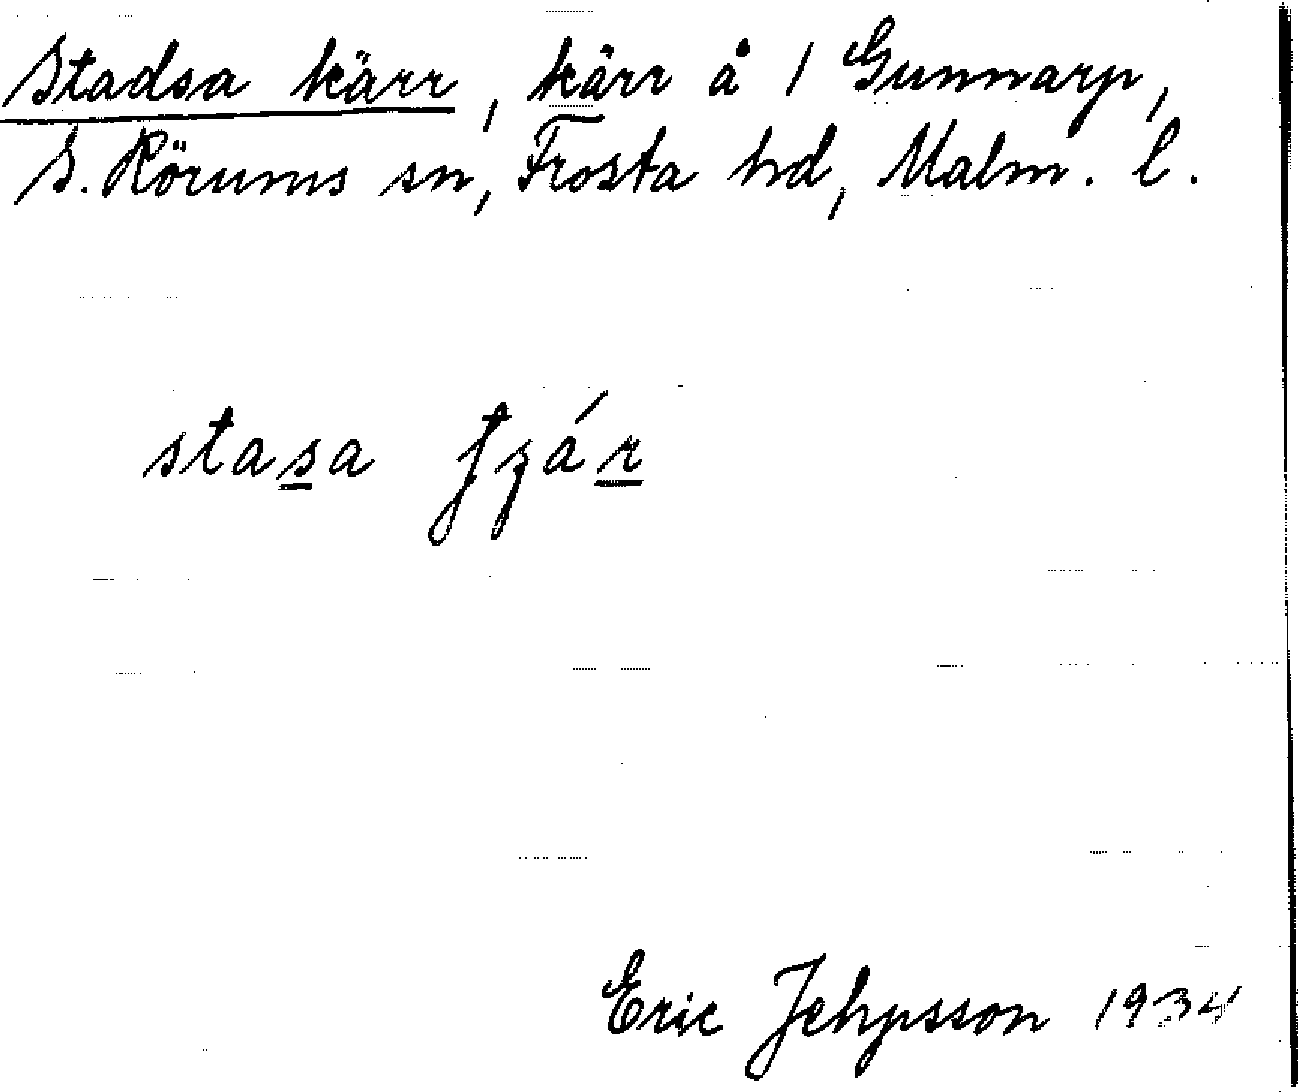 Stadsa kärr, kärr å 1 Gunnarp,
S. Rörums sn, Frosta hd, Malm. l.
stasa
Eric Jehpsson 1934